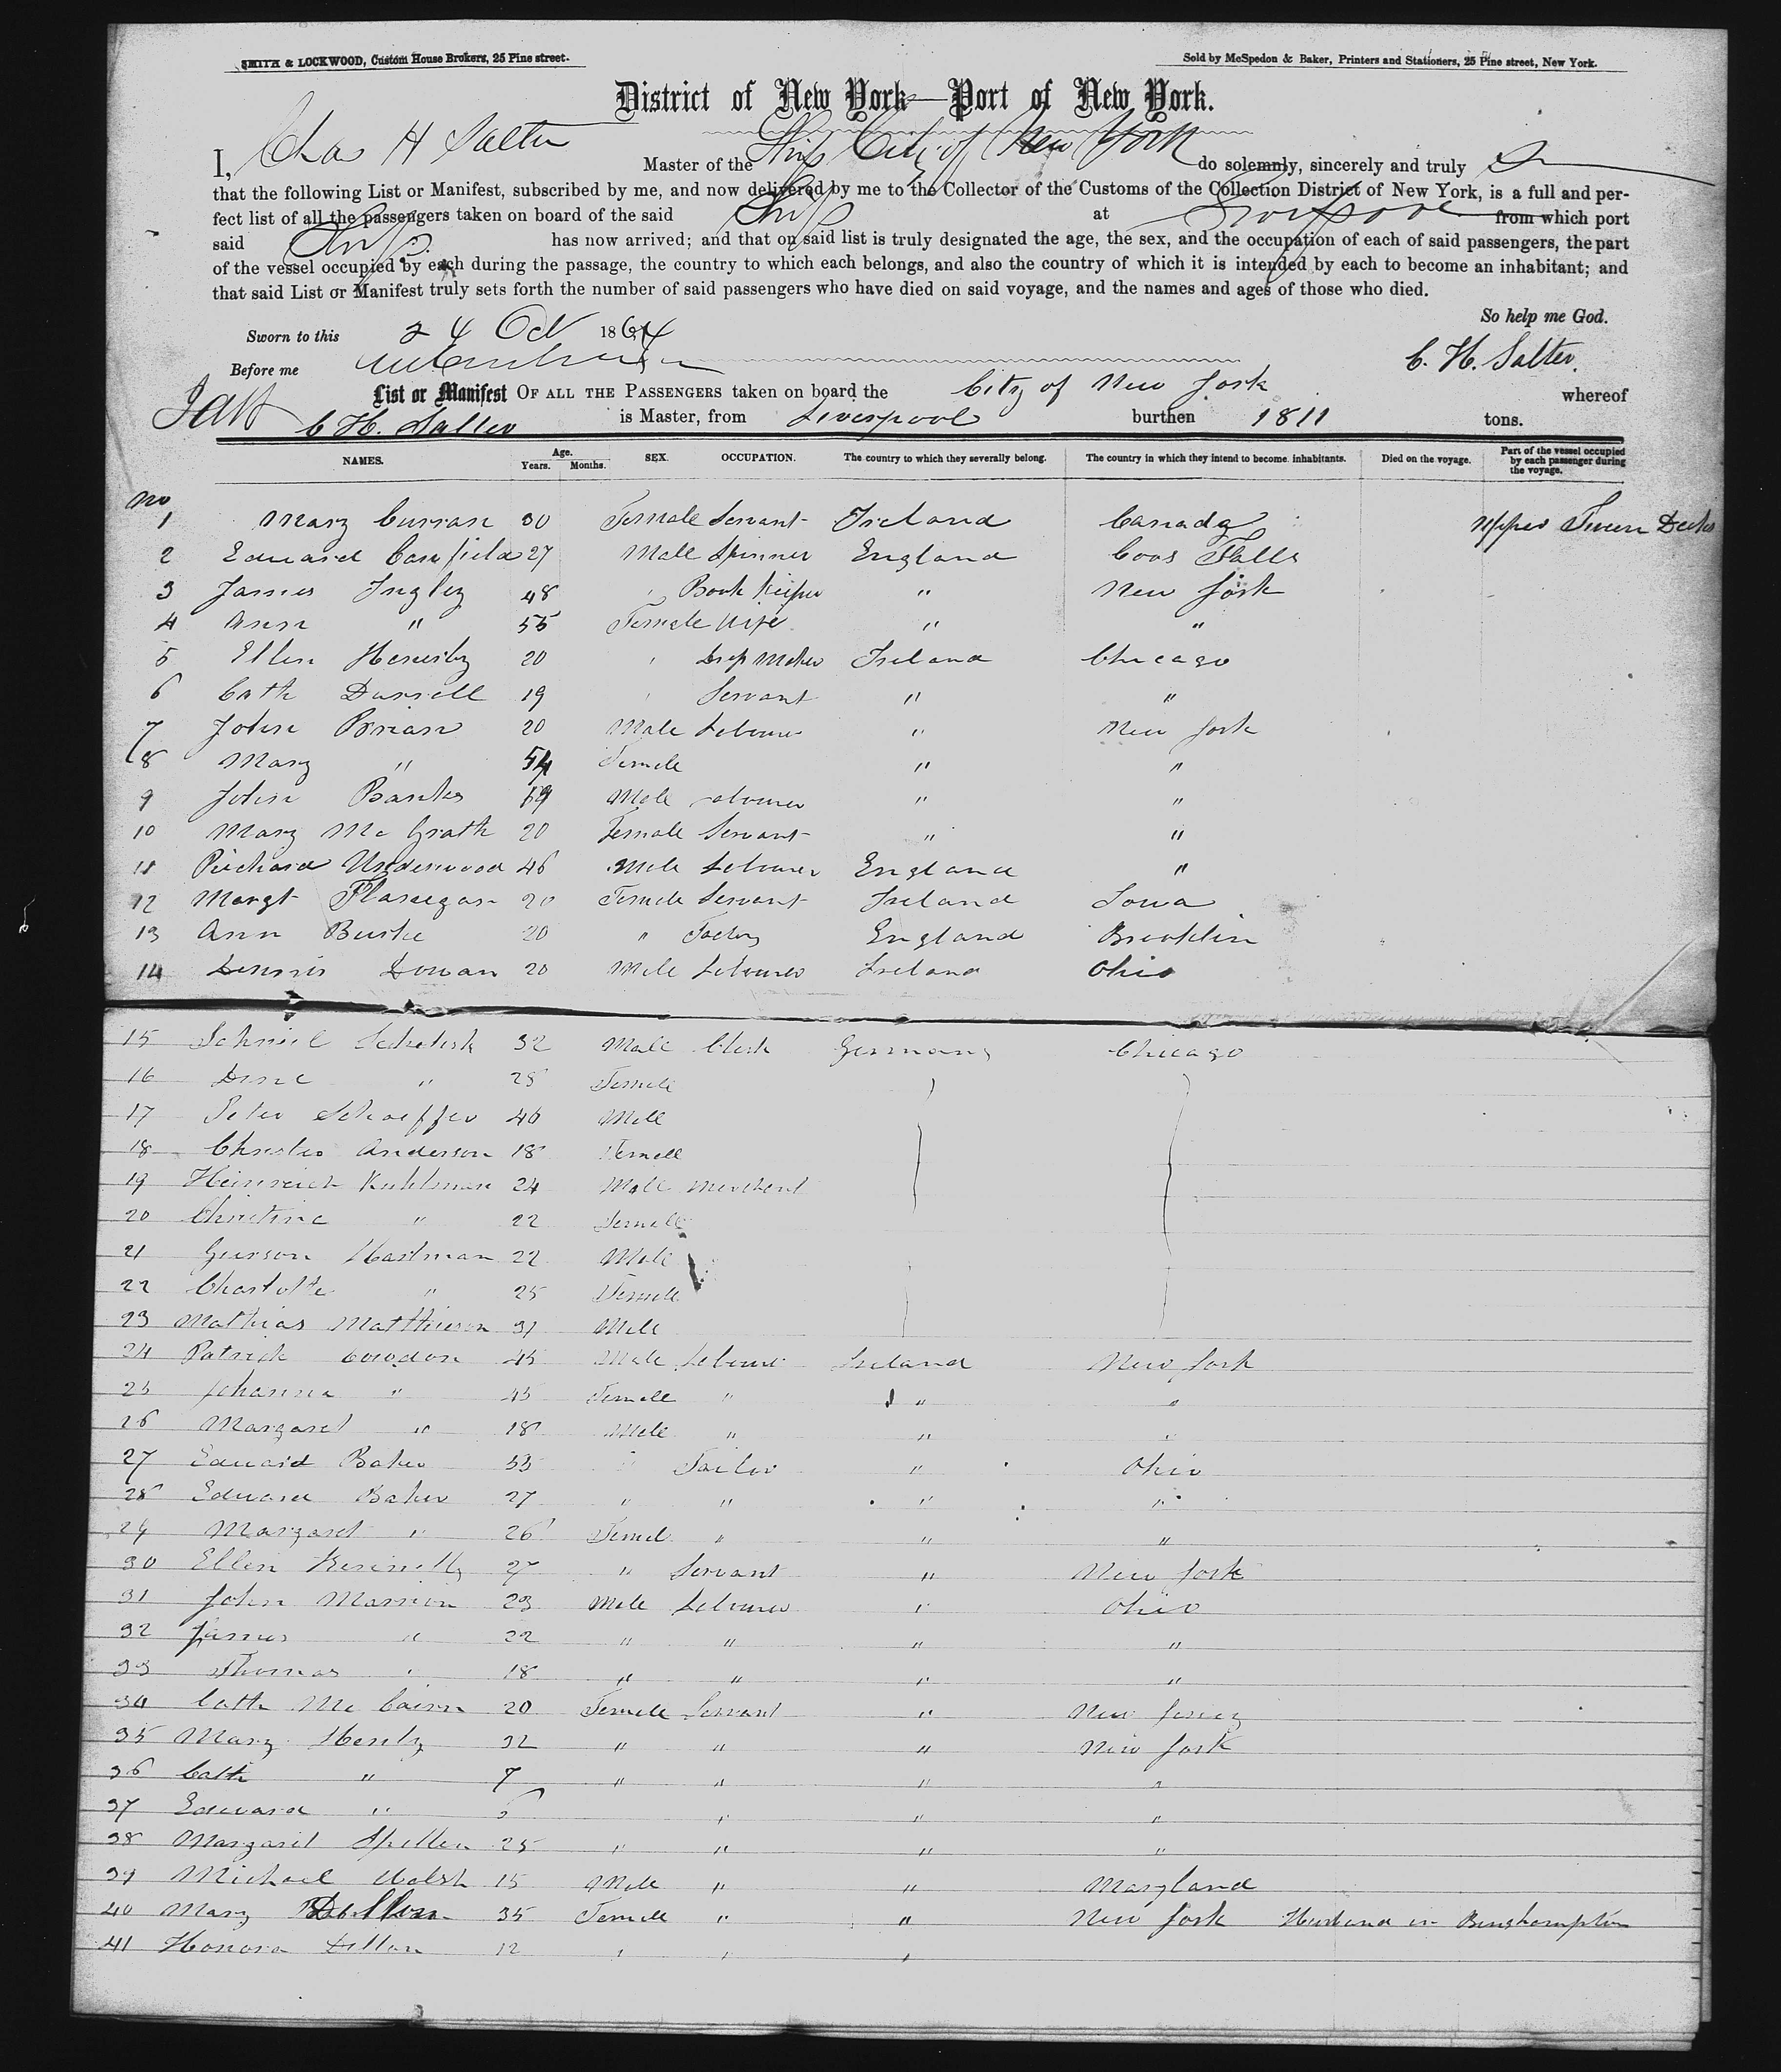 SMITH & LOCKWOOD, Custom House Brokers, 25 Pine street.
Sold by McSpedon & Baker, Printers and Stationers, 25 Pine street, New York.
District of New York—Port of New York.
I, Chas H Salter Master of the Ship City of New York do solemnly, sincerely and truly
that the following List or Manifest, subscribed by me, and now delivered by me to the Collector of the Customs of the Collection District of New York, is a full and per-
fect list of all the passengers taken on board of the said Ship at Liverpool from which port
said Ship has now arrived; and that on said list is truly designated the age, the sex, and the occupation of each of said passengers, the part
of the vessel occupied by each during the passage, the country to which each belongs, and also the country of which it is intended by each to become an inhabitant; and
that said List or Manifest truly sets forth the number of said passengers who have died on said voyage, and the names and ages of those who died.
So help me God.
Sworn to this 24 Oct 1864
C. H. Salter.
Before me
List or Manifest OF ALL THE PASSENGERS taken on board the City of New York whereof
C H. Salter is Master, from Liverpool burthen 1811 tons.
NAMES. Age. Years. Months. SEX. OCCUPATION. The country to which they severally belong. The country in which they intend to become inhabitants. Died on the voyage. Part of the vessel occupied by each passenger during the voyage.
No
1 Mary Curran 30 Female Servant Ireland Canada Upper Tween Decks
2 Edward Canfield 27 Male Spinner England Coos Falls
3 James Ingley 48 " Book Keeper " New York
4 Ann " 55 Female Wife " "
5 Ellen 20 " Maker Ireland Chicago
6 Cath 19 " Servant " "
7 John Brian 20 Male Labourer " New York
8 Mary " 54 Female " "
9 John Banks 19 Male Labourer " "
10 Mary Mc Grath 20 Female Servant " "
11 Richard Underwood 46 Male Labourer England "
12 Margt Flanegan 20 Female Servant Ireland Iowa
13 Ann Burke 20 " Factory England Brooklin
14 Dennis Dowan 20 Male Labourer Ireland Ohio
15 32 Male Clerk Germany Chicago
16 " 28 Female
17 Peter Schaeffer 46 Male
18 Anderson 18 Female
19 Heinreich Kuhlman 24 Male Merchant
20 Christine " 22 Female
21 Hartman 22 Male
22 Charlotte " 25 Female
23 Mathias 31 Male
24 Patrick 45 Male Labourer Ireland New York
25 Johanna " 45 Female " " "
26 Margaret " 18 Male " " "
27 Edward Baker 53 " Tailor " Ohio
28 Edward Baker 27 " " " "
29 Margaret " 26 Femal " " "
30 Ellen 27 " Servant " New York
31 John Marrion 23 Male Labourer " Ohio
32 James " 22 " " " "
33 Thomas " 18 " " " "
34 Cath Mc 20 Female Servant " New Jersey
35 Mary Henly 32 " " " New York
36 Cath " 7 " " " "
37 Edward " " " "
38 Margaret Spellen 25 " " " "
39 Michael Walsh 15 Male " " Maryland
40 Mary Dillon 35 Female " " New York Husband in Binghampton
41 Honora Dillon 12 " " "